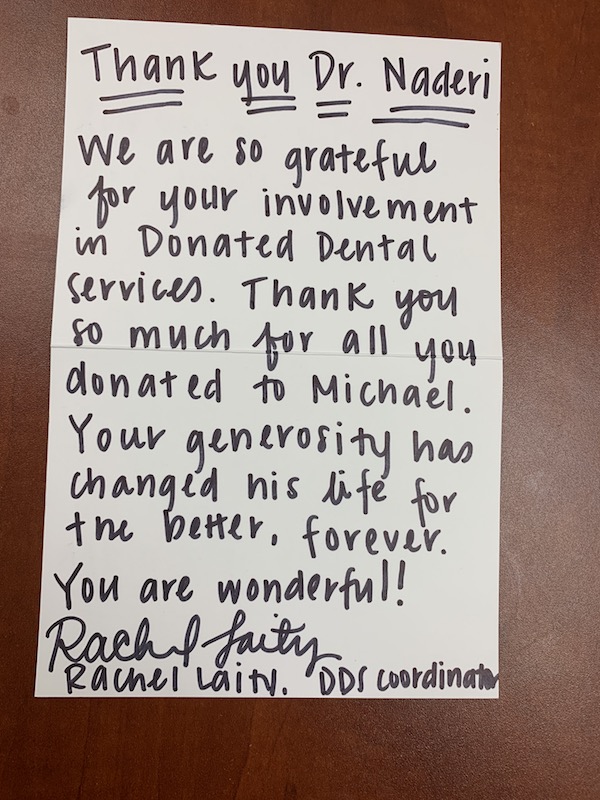 Thank you Dr. Naderi
We are so grateful
for your involvement
in Donated Dental
services. Thank you
so much for all you
donated to Michael.
Your generosity has
changed his life for
the better, forever.
You are wonderful!
Rachel Laity
Rachel Laity. DDS coordinator